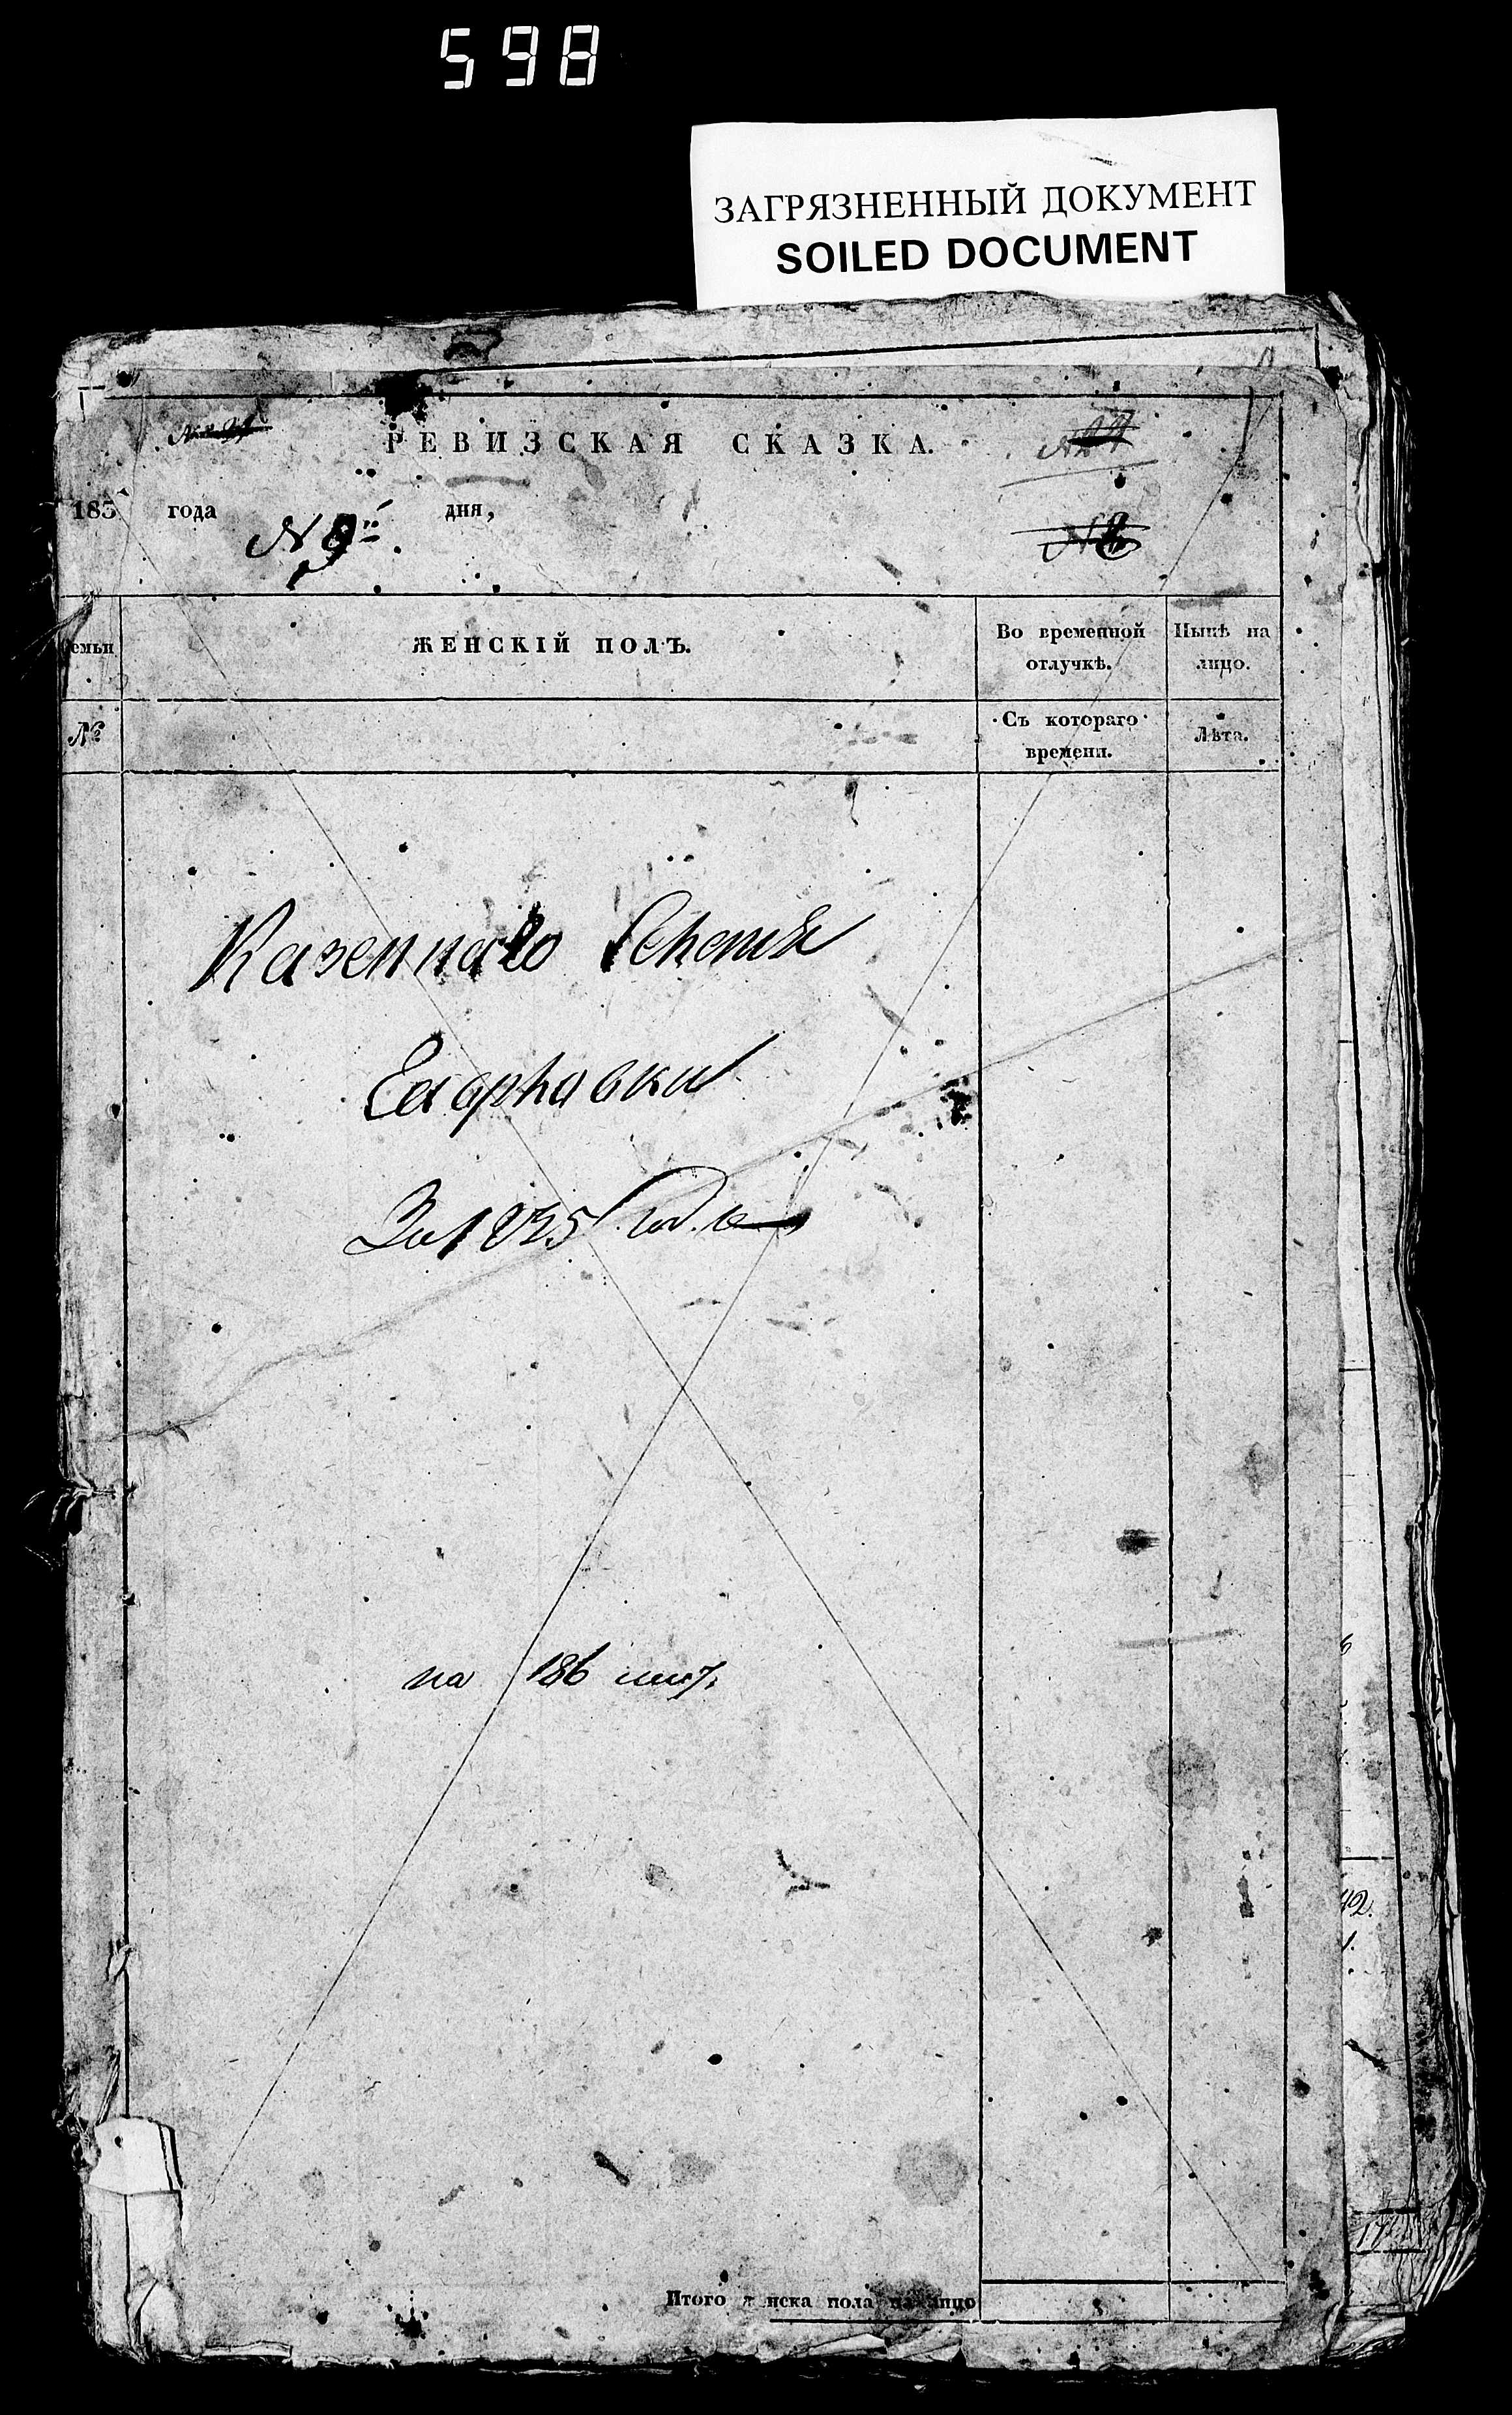 598
ЗАГРЯЗНЕННЫЙ ДОКУМЕНТ
SOILED DOCUMENT
РЕВИЗСКАЯ СКАЗКА.
183 года дня,
N 9й.
Семьи
ЖЕНСКІЙ ПОЛЪ.
Во временной отлучкѣ.
Нынѣ на лицо.
№
Съ котораго времени.
Лѣта.
Казеннаго
За 1835 год.
на 186
Итого нска пола на лицо